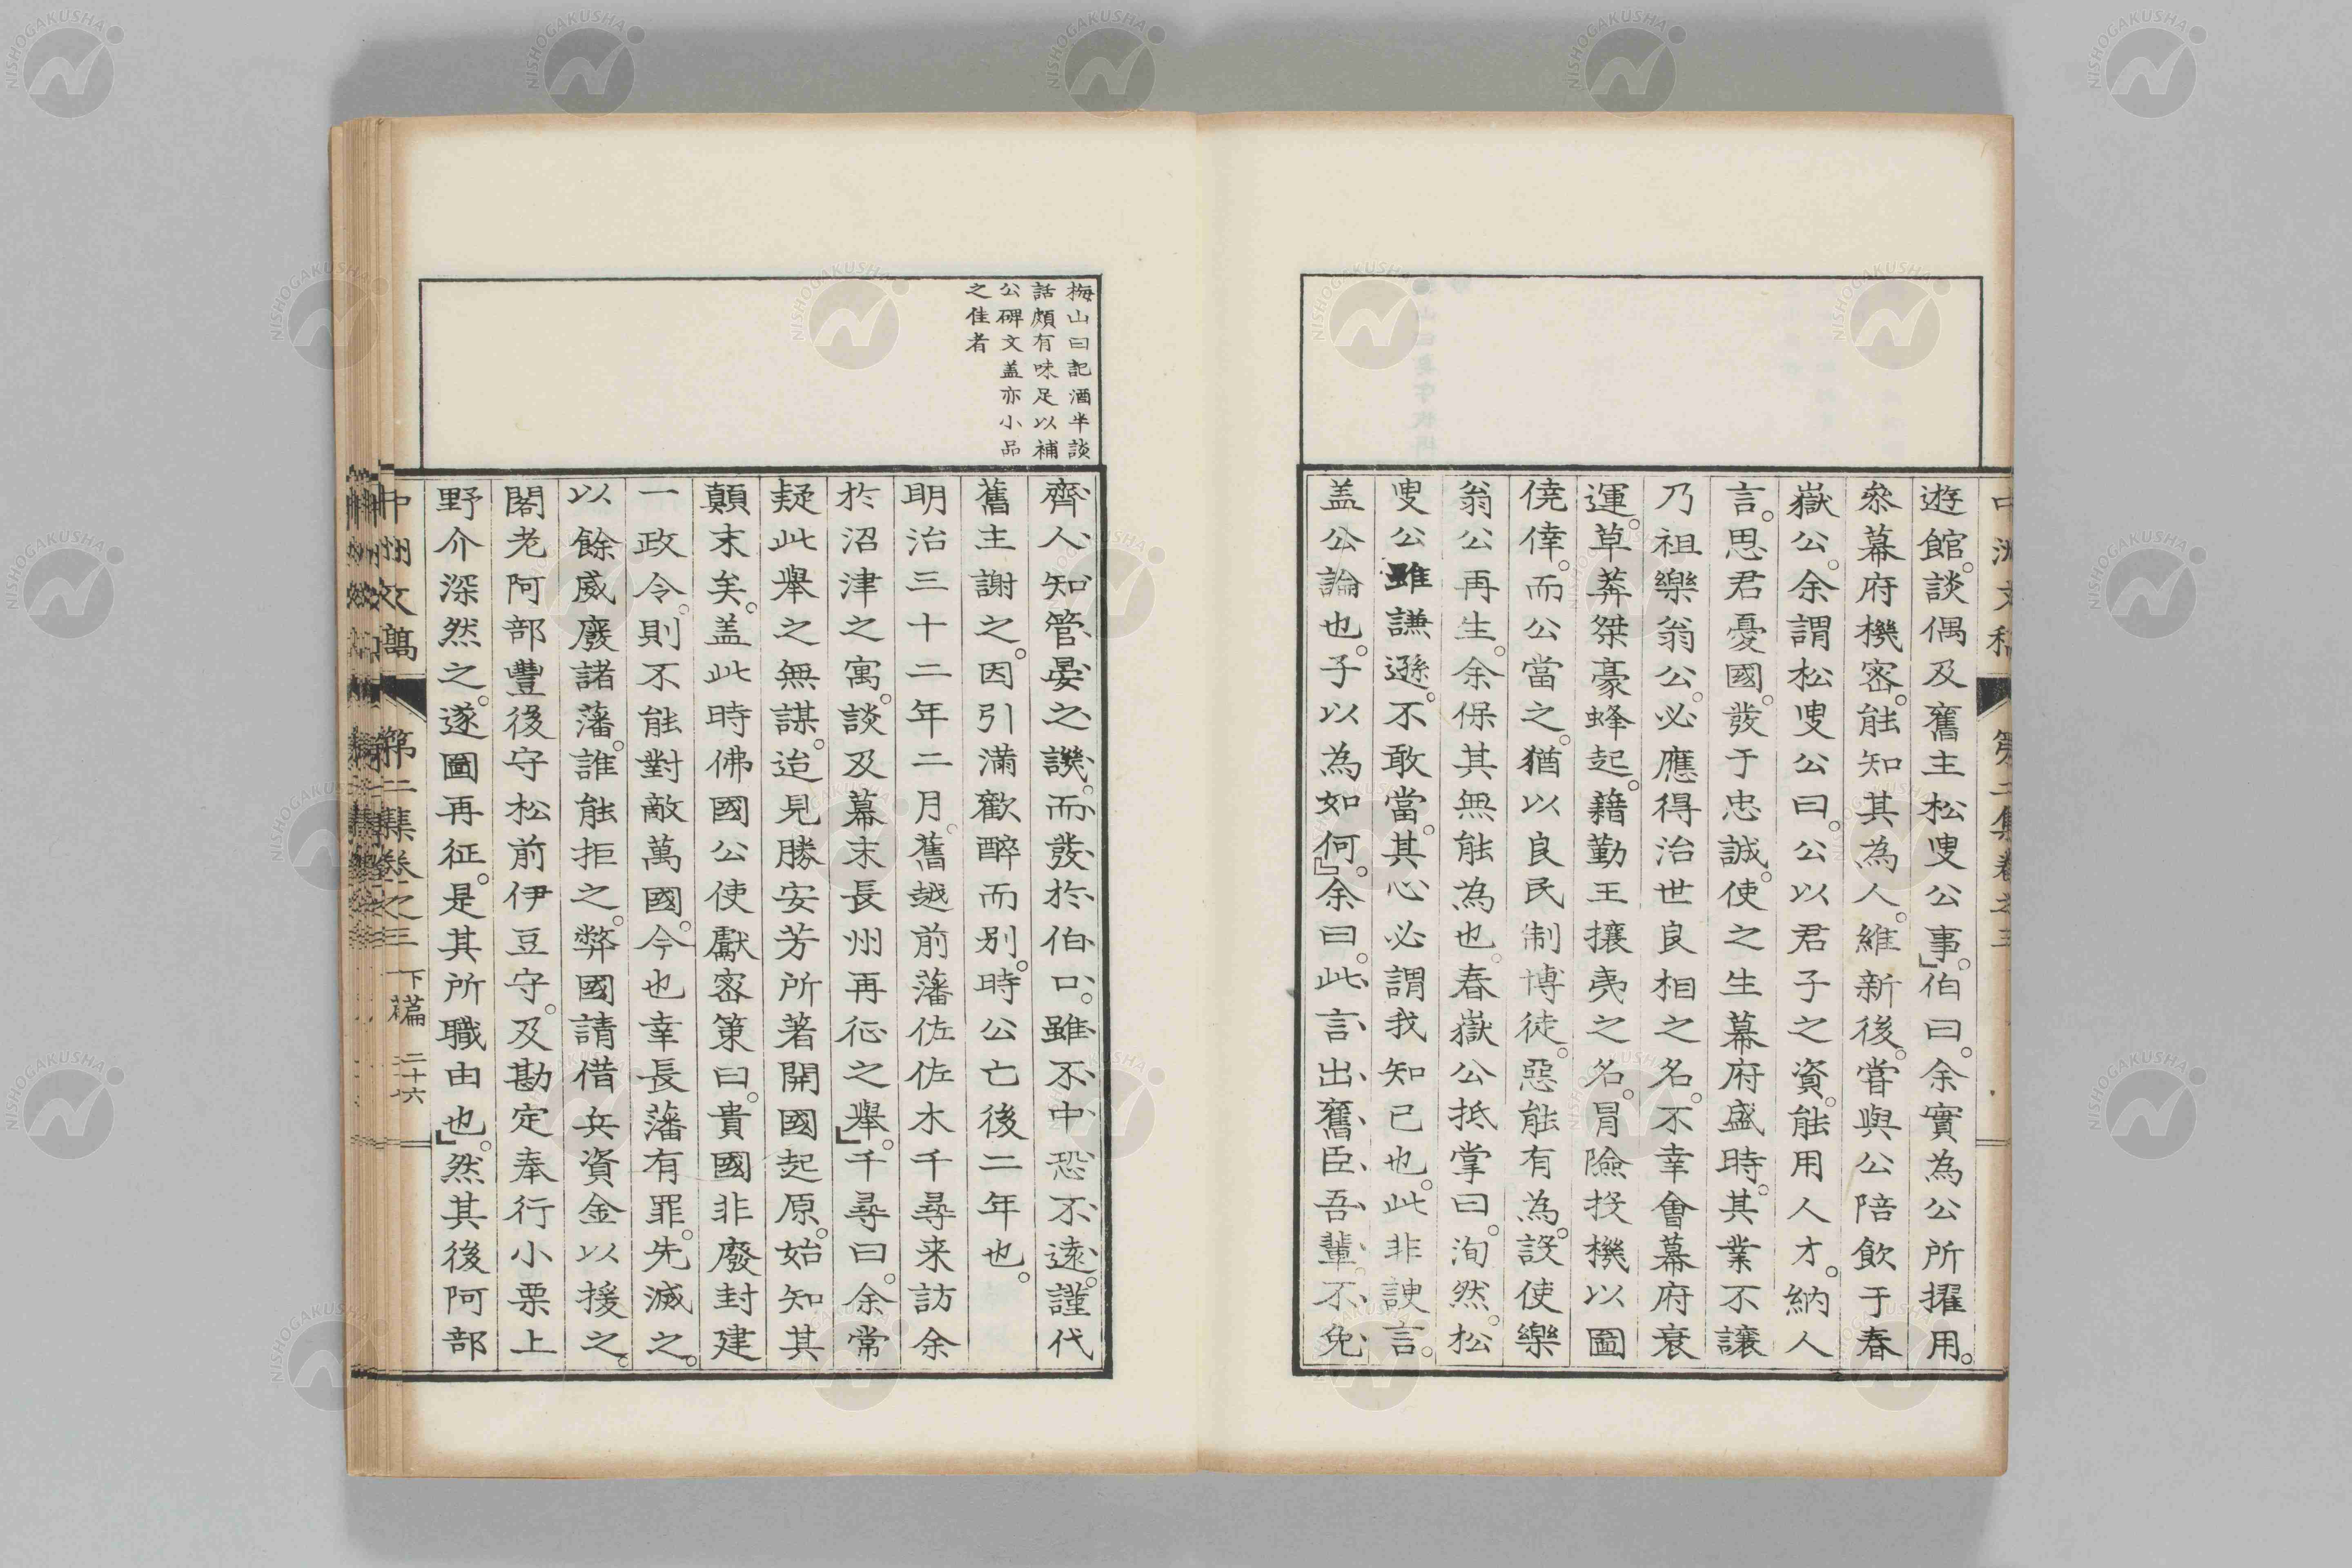 遊館。談偶及舊主松叟公事。」伯曰。余實為公所擢用。
叅幕府機密。能知其為人。維新後。嘗與公陪飲于春
嶽公。余謂松叟公曰。公以君子之資。能用人才。納人
言。思君憂國。發于忠誠。使之生幕府盛時。其業不讓
乃祖樂翁公。必應得治世良相之名。不幸會幕府衰
運。草莽桀豪蜂起。藉勤王攘夷之名。冒險投機以圖
僥倖。而公當之。猶以良民制博徒。惡能有為。設使樂
翁公再生。余保其無能為也。春嶽公抵掌曰。洵然。松
叟公雖謙遜。不敢當。其心必謂我知已也。此非諛言。
盖公論也。子以為如何。」余曰。此言出舊臣吾輩。不免
齊人知管晏之譏。而發於伯口。雖不中恐不遠。謹代
舊主謝之。因引滿歡醉而別。時公亡後二年也。
明治三十二年二月。舊越前藩佐佐木千尋来訪余
於沼津之寓。談及幕末長州再征之舉。」千尋曰。余常
疑此舉之無謀。迨見勝安芳所著開國起原。始知其
顛末矣。盖此時佛國公使獻密策曰。貴國非廢封建
一政令。則不能對敵萬國。今也幸長藩有罪。先滅之。
以餘威廢諸藩。誰能拒之。弊國請借兵資金以援之。
閣老阿部豐後守松前伊豆守。及勘定奉行小栗上
野介深然之。遂圖再征。是其所職由也。」然其後阿部
梅山曰記酒半談
話頗有味足以補
公碑文盖亦小品
之佳者
中洲文稿
第二集卷之三
中洲文藁
第二集卷之三
下篇
二十六
NISHOGAKUSHA